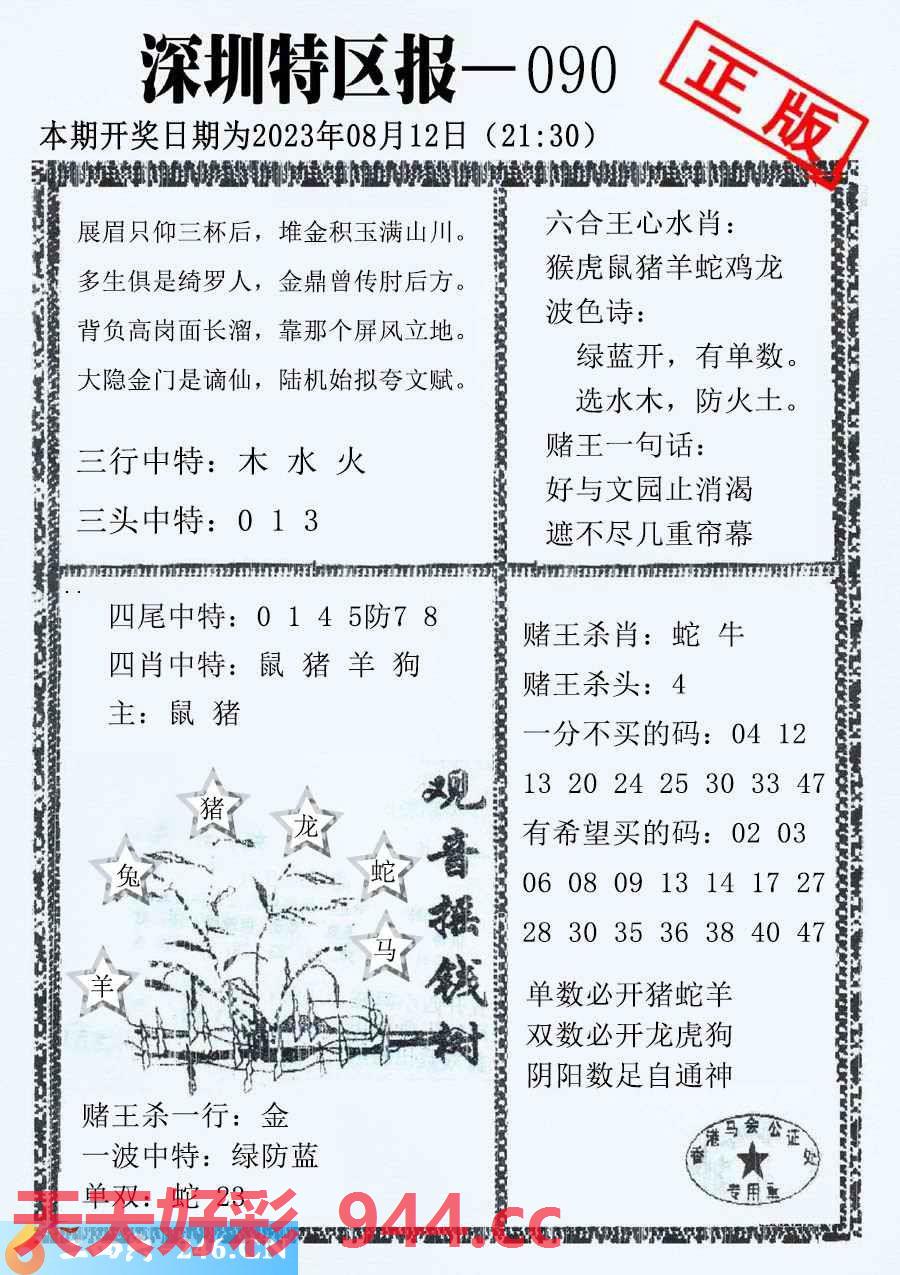 深圳特区报—090
正版
本期开奖日期为2023年08月12日（21:30）
展眉只仰三杯后，堆金积玉满山川。
多生俱是绮罗人，金鼎曾传肘后方。
背负高岗面长溜，靠那个屏风立地。
大隐金门是谪仙，陆机始拟夸文赋。
三行中特：木 水 火
三头中特：0 1 3
六合王心水肖：
猴虎鼠猪羊蛇鸡龙
波色诗：
绿蓝开，有单数。
选水木，防火土。
赌王一句话：
好与文园止消渴
遮不尽几重帘幕
四尾中特：0 1 4 5防7 8
四肖中特：鼠 猪 羊 狗
主：鼠 猪
猪
龙
兔
蛇
马
羊
观音摇钱树
赌王杀一行：金
一波中特：绿防蓝
单双：蛇 23
赌王杀肖：蛇 牛
赌王杀头：4
一分不买的码：04 12
13 20 24 25 30 33 47
有希望买的码：02 03
06 08 09 13 14 17 27
28 30 35 36 38 40 47
单数必开猪蛇羊
双数必开龙虎狗
阴阳数足自通神
香港马会公证处
专用章
天天好彩 944.cc